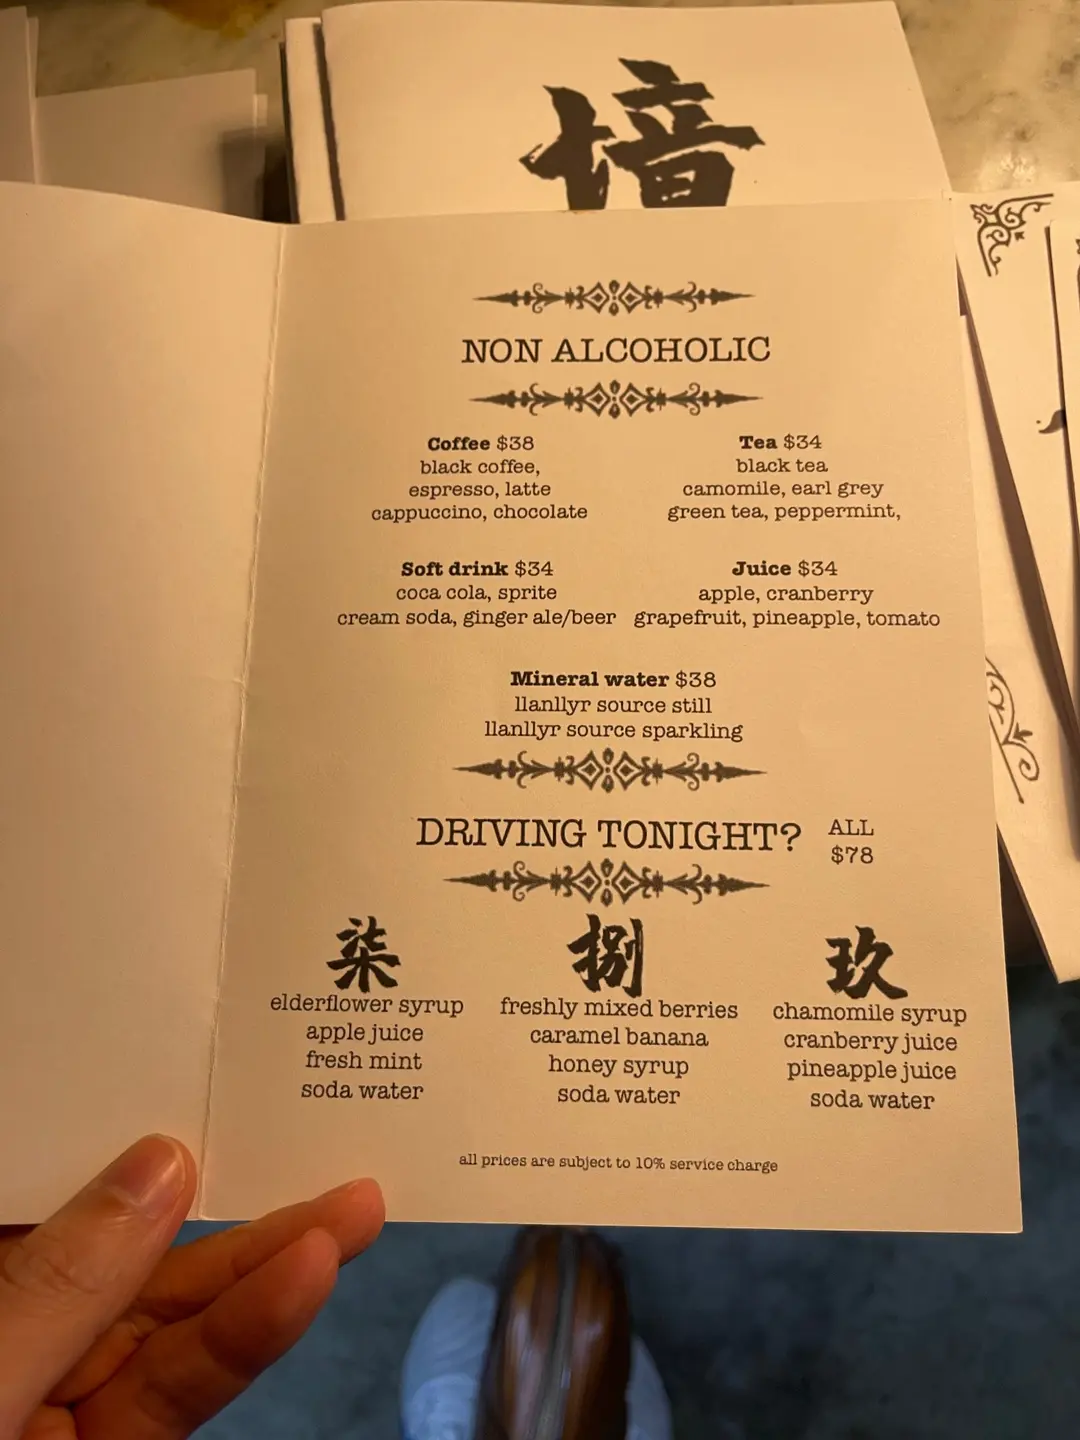 NON ALCOHOLIC
Coffee $38
black coffee,
espresso, latte
cappuccino, chocolate
Tea $34
black tea
camomile, earl grey
green tea, peppermint,
Soft drink $34
coca cola, sprite
cream soda, ginger ale/beer
Juice $34
apple, cranberry
grapefruit, pineapple, tomato
Mineral water $38
llanllyr source still
llanllyr source sparkling
DRIVING TONIGHT?
ALL
$78
柒
elderflower syrup
apple juice
fresh mint
soda water
捌
freshly mixed berries
caramel banana
honey syrup
soda water
玖
chamomile syrup
cranberry juice
pineapple juice
soda water
all prices are subject to 10% service charge